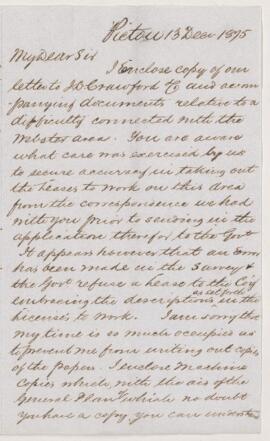 Pictou 13 Decr 1875
My Dear Sir
I Enclose copy of our
letter to J D Crawford & and accom
panying documents relative to a
difficulty connected with the
Webster area. You are aware
what care was exercised by us
to secure accuracy in taking out
the leases to work on this area
from the correspondence we had
with you prior to sending in the
application therefor to the Govt
It appears however that an Error
has been made in the Survey &
the Govt refuse a lease to the Coy
embracing the descriptions in the
licenses to work. I am sorry that
my time is so much occupied as
to prevent me from writing out copies
of the papers. I enclose Machine
copies which with the aid of the
General Plan of which no doubt
you have a copy you can understan